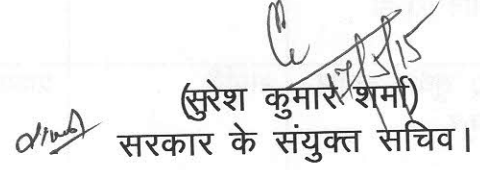 17/5/15
(सुरेश कुमार शर्मा)
सरकार के संयुक्त सचिव।